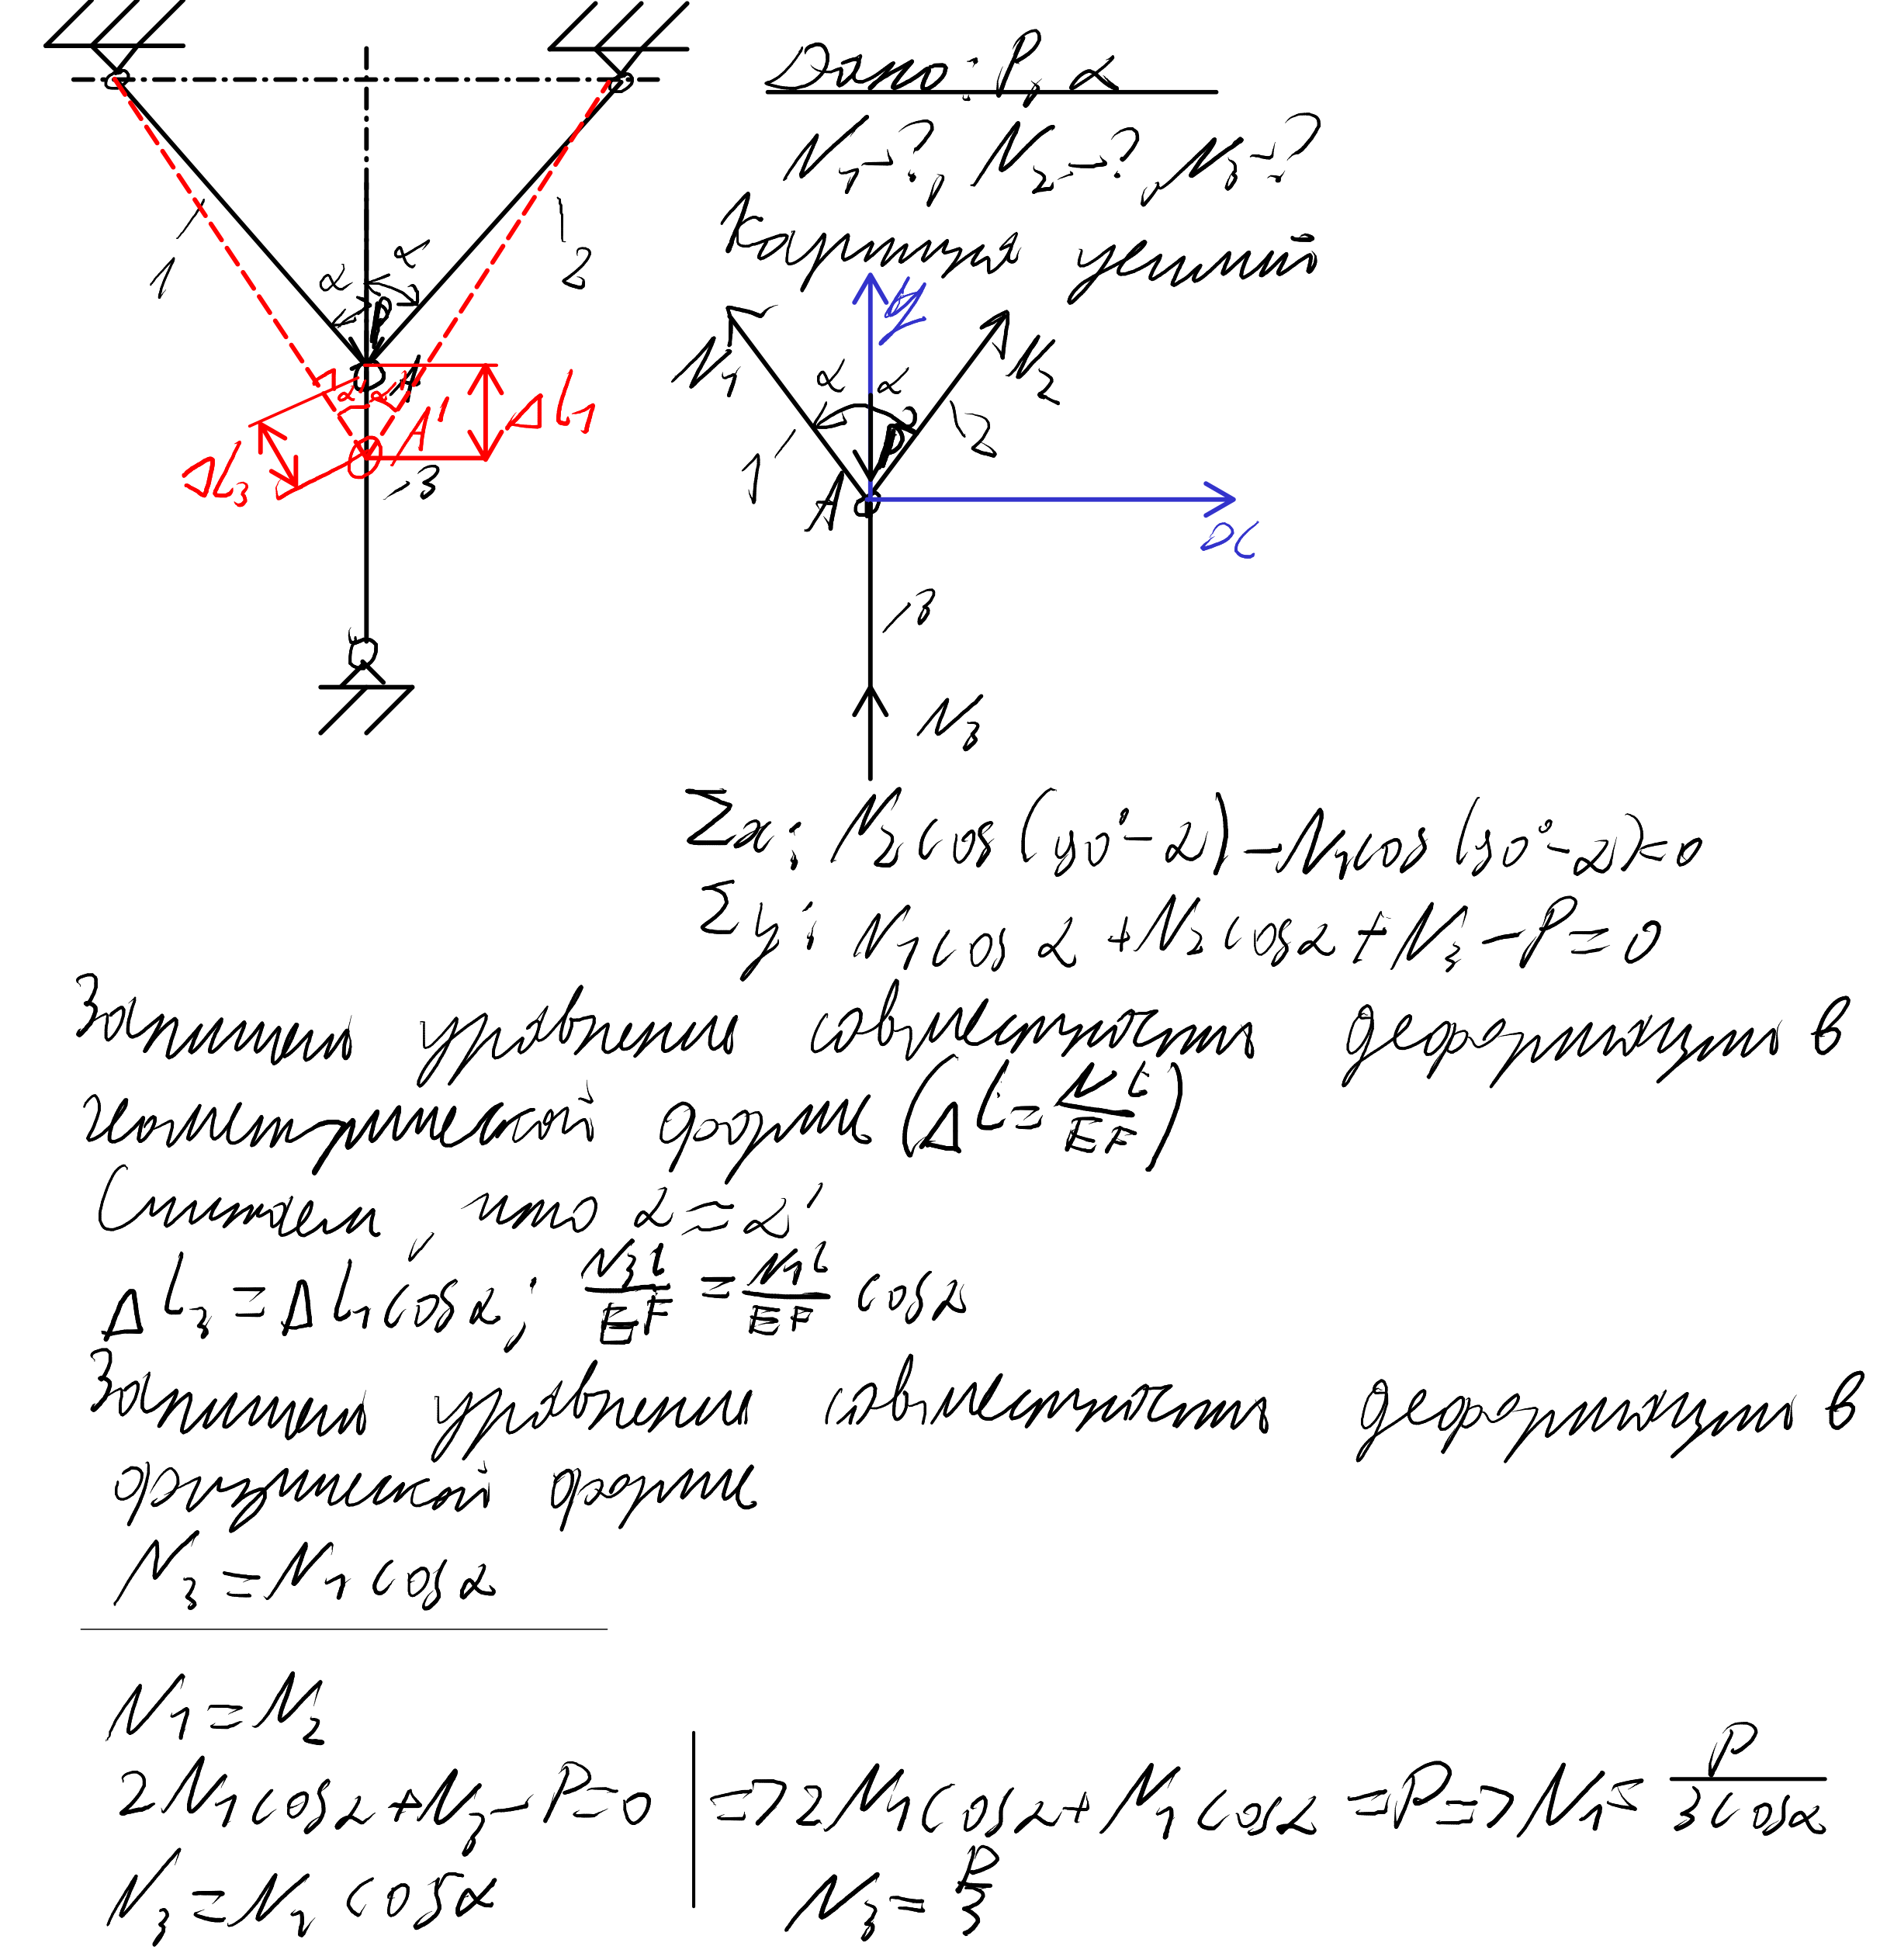 Дано: P, α
N₁-?, N₂-?, N₃-?
Картина усилий
1
2
α
α
P
A
A'
Δl₁
Δl₃
α'
α'
3
y
N₁
N₂
α
α
P
1
2
A
x
3
N₃
Σx: N₂cos(90°-α)-N₁cos(90°-α)=0
Σy: N₁cosα+N₂cosα+N₃-P=0
Запишем уравнение совместности деформации в
геометрической форме (Δl=Nl/EF)
Считаем, что α=α'
Δl₃=Δl₁cosα; N₃l/EF=N₁l/EF cosα
Запишем уравнение совместности деформации в
физической форме
N₃=N₁cosα
N₁=N₂
2N₁cosα+N₃-P=0 | =>2N₁cosα+N₁cosα=P=>N₁=P/3cosα
N₃=N₁cosα | N₃=P/3